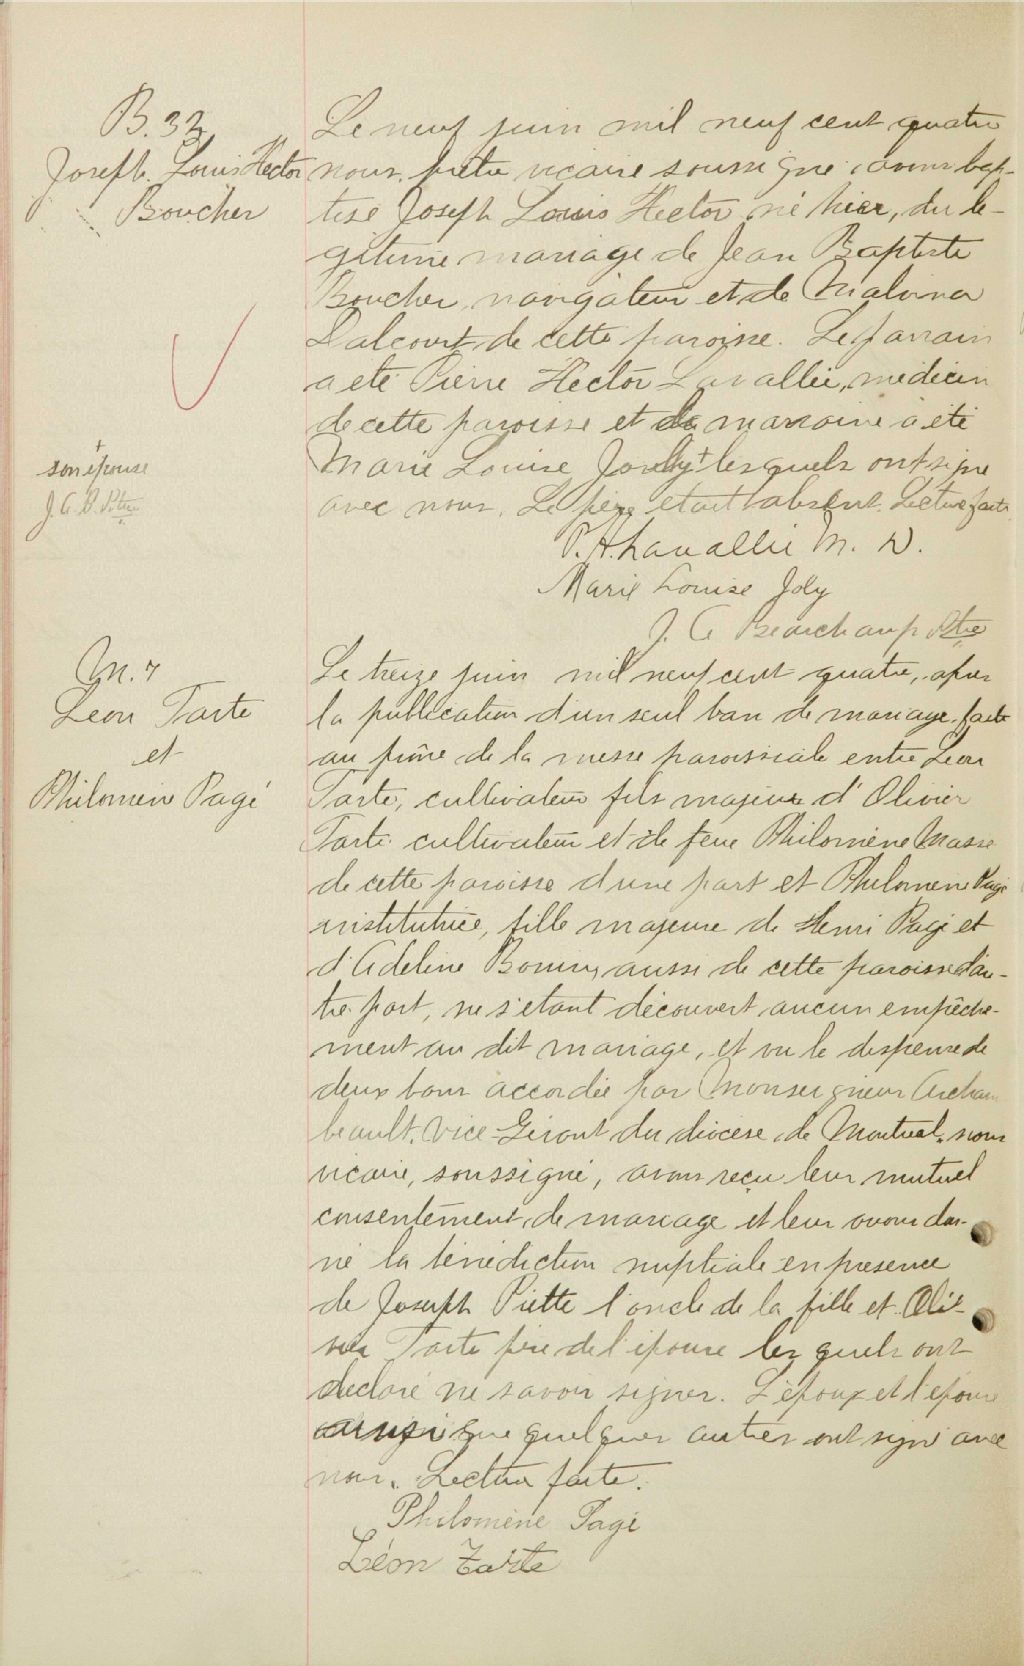 B. 32
Joseph Louis Hector
Boucher
Le neuf juin mil neuf cent quatre
nous, prêtre vicaire soussigné, avons bap-
tisé Joseph Louis Hector né hier, du lé-
gitime mariage de Jean Baptiste
Boucher navigateur et de Malvina
Dalcourt de cette paroisse. Le parrain
a été Pierre Hector Lavallée, médecin
de cette paroisse et la marraine a été
Marie Louise Joly + lesquels ont signé
avec nous. Le père était absent. Lecture faite
+
son épouse
J. A. B. Ptre
P. H. Lavallée M. D.
Marie Louise Joly
J. A Beauchamp Ptre
M. 7
Léon Tarte
et
Philomène Pagé
Le treize juin mil neuf cent quatre, après
la publication d'un seul ban de mariage faite
au prône de la messe paroissiale entre Léon
Tarte, cultivateur fils majeur d'Olivier
Tarte cultivateur et de feue Philomène Masse
de cette paroisse d'une part et Philomène Pagé
institutrice, fille majeure de Henri Pagé et
d'Adeline aussi de cette paroisse d'au-
tre part, ne s'étant découvert aucun empêche-
ment au dit mariage, et vu le dispense de
deux bans accordée par Monseigneur Archam
beault, Vice-Gérant du diocèse de Montréal, nous
vicaire, soussigné, avons reçu leur mutuel
consentement de mariage et leur avons don-
né la bénédiction nuptiale en présence
de Joseph Piette l'oncle de la fille et Oli-
vier Tarte père de l'épouse lesquels ont
déclaré ne savoir signer. L'époux et l'épouse
ainsi que quelques autres ont signé avec
nous. Lecture faite.
Philomène Pagé
Léon Tarte